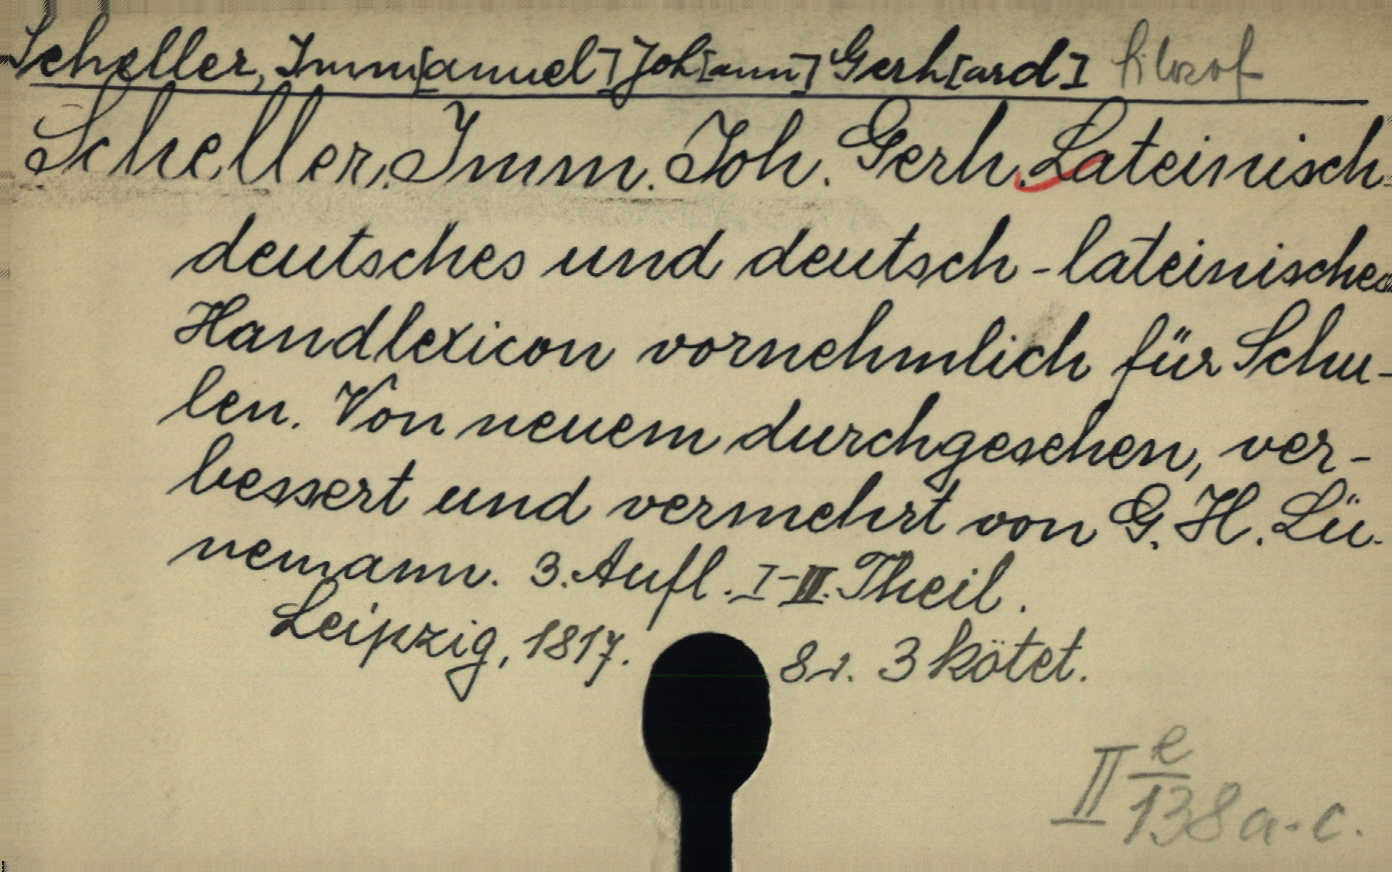 Scheller, Imm[anuel] Joh[ann] Gerh[ard] filozof
Scheller, Imm. Joh. Gerh. Lateinisch-
deutsches und deutsch-lateinisches
Handlexicon vornehmlich für Schu-
len. Von neuem durchgesehen, ver-
bessert und vermehrt von G. H. Lü-
nemann. 3. Aufl. I-III. Theil.
Leipzig, 1817. 8r. 3 kötet.
II e/138 a-c.